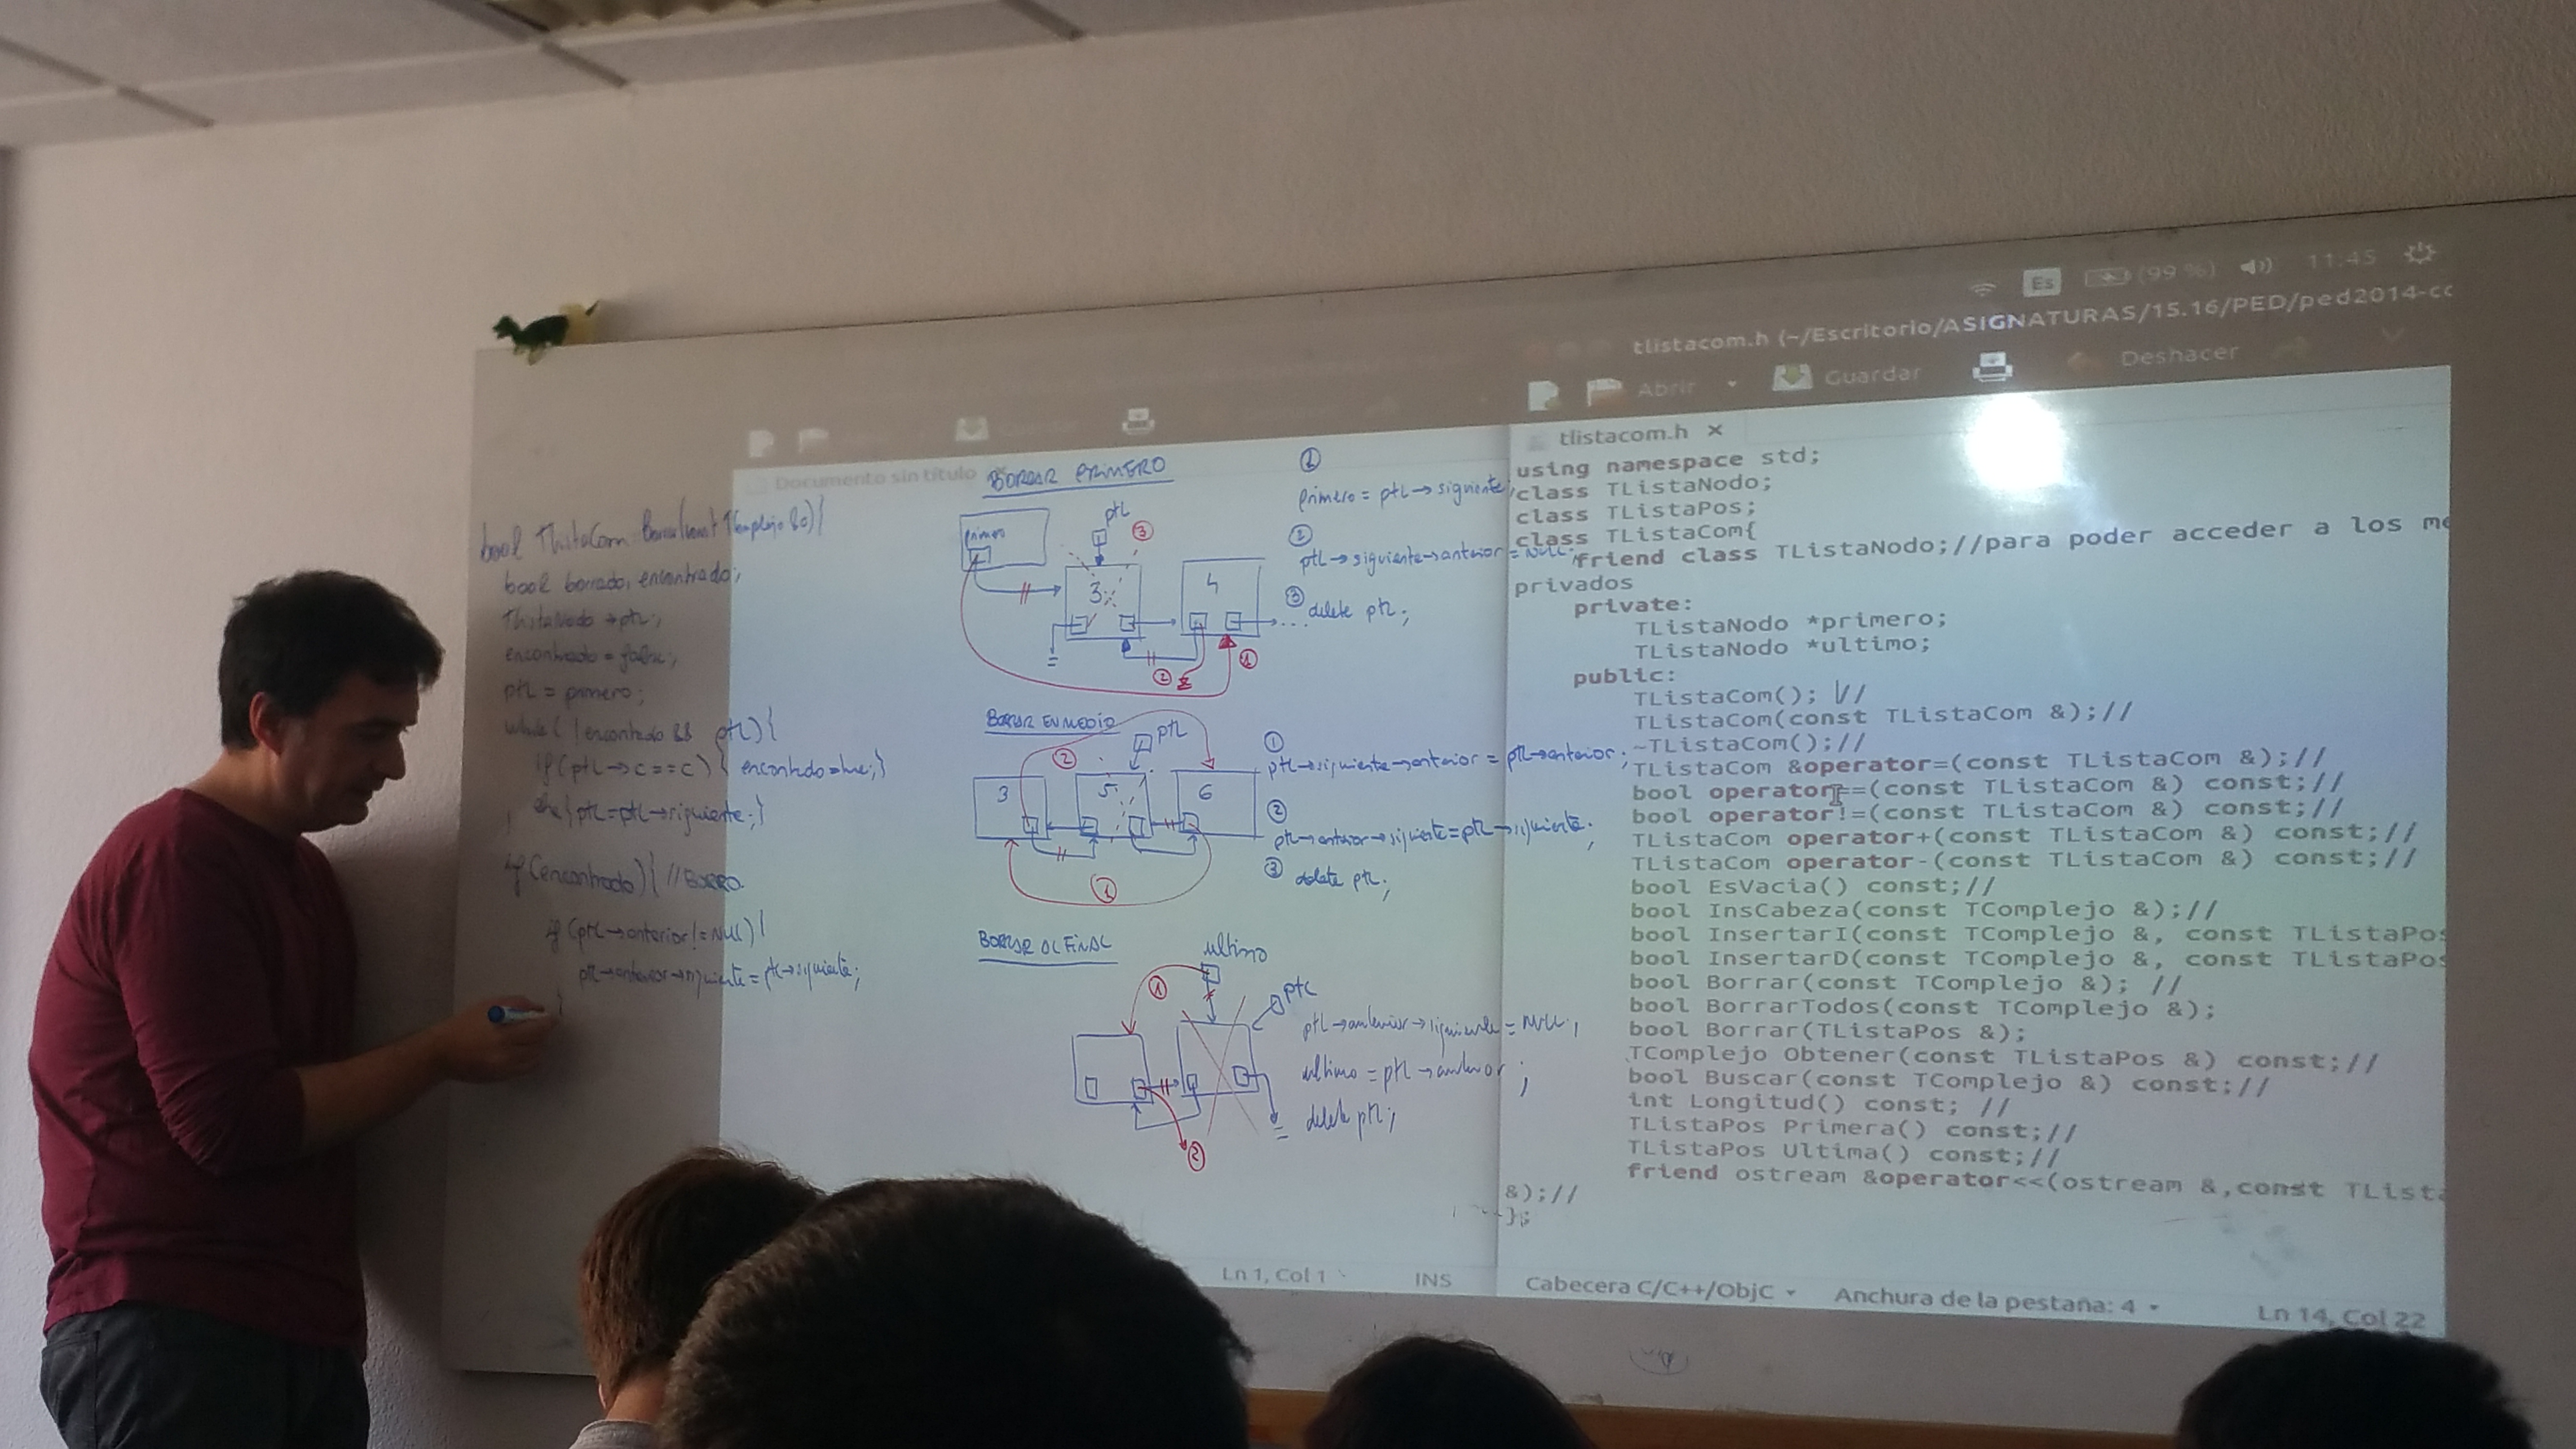 tlistacom.h (~/Escritorio/ASIGNATURAS/15.16/PED/ped2014-cc
Es
(99 %)
11:45
Abrir
Guardar
Deshacer
Documento sin titulo
tlistacom.h ×
bool TListaCom Borrar(const TComplejo &c){
bool borrado, encontrado;
TListaNodo *ptl;
encontrado = false;
ptl = primero;
while( !encontrado && ptl){
if(ptl→c==c){ encontrado=true;}
else{ ptl=ptl→siguiente;}
}
if(encontrado){ //BORRO.
if(ptl→anterior!=NULL){
ptl→anterior→siguiente=ptl→siguiente;
}
BORRAR PRIMERO
primero
ptl
3
4
①
primero = ptl→siguiente;
②
ptl→siguiente→anterior=NULL;
③ delete ptl;
BORRAR EN MEDIO
ptl
3
5
6
①
ptl→siguiente→anterior = ptl→anterior;
②
ptl→anterior→siguiente=ptl→siguiente;
③ delete ptl;
BORRAR AL FINAL
ultimo
ptl
ptl→anterior→siguiente=NULL;
ultimo=ptl→anterior;
delete ptl;
using namespace std;
class TListaNodo;
class TListaPos;
class TListaCom{
friend class TListaNodo;//para poder acceder a los me
privados
private:
TListaNodo *primero;
TListaNodo *ultimo;
public:
TListaCom(); //
TListaCom(const TListaCom &);//
~TListaCom();//
TListaCom &operator=(const TListaCom &);//
bool operator==(const TListaCom &) const;//
bool operator!=(const TListaCom &) const;//
TListaCom operator+(const TListaCom &) const;//
TListaCom operator-(const TListaCom &) const;//
bool EsVacia() const;//
bool InsCabeza(const TComplejo &);//
bool InsertarI(const TComplejo &, const TListaPos
bool InsertarD(const TComplejo &, const TListaPos
bool Borrar(const TComplejo &); //
bool BorrarTodos(const TComplejo &);
bool Borrar(TListaPos &);
TComplejo Obtener(const TListaPos &) const;//
bool Buscar(const TComplejo &) const;//
int Longitud() const; //
TListaPos Primera() const;//
TListaPos Ultima() const;//
friend ostream &operator<<(ostream &,const TLista
&);//
};
Ln 1, Col 1
INS
Cabecera C/C++/ObjC
Anchura de la pestaña: 4
Ln 14, Col 22